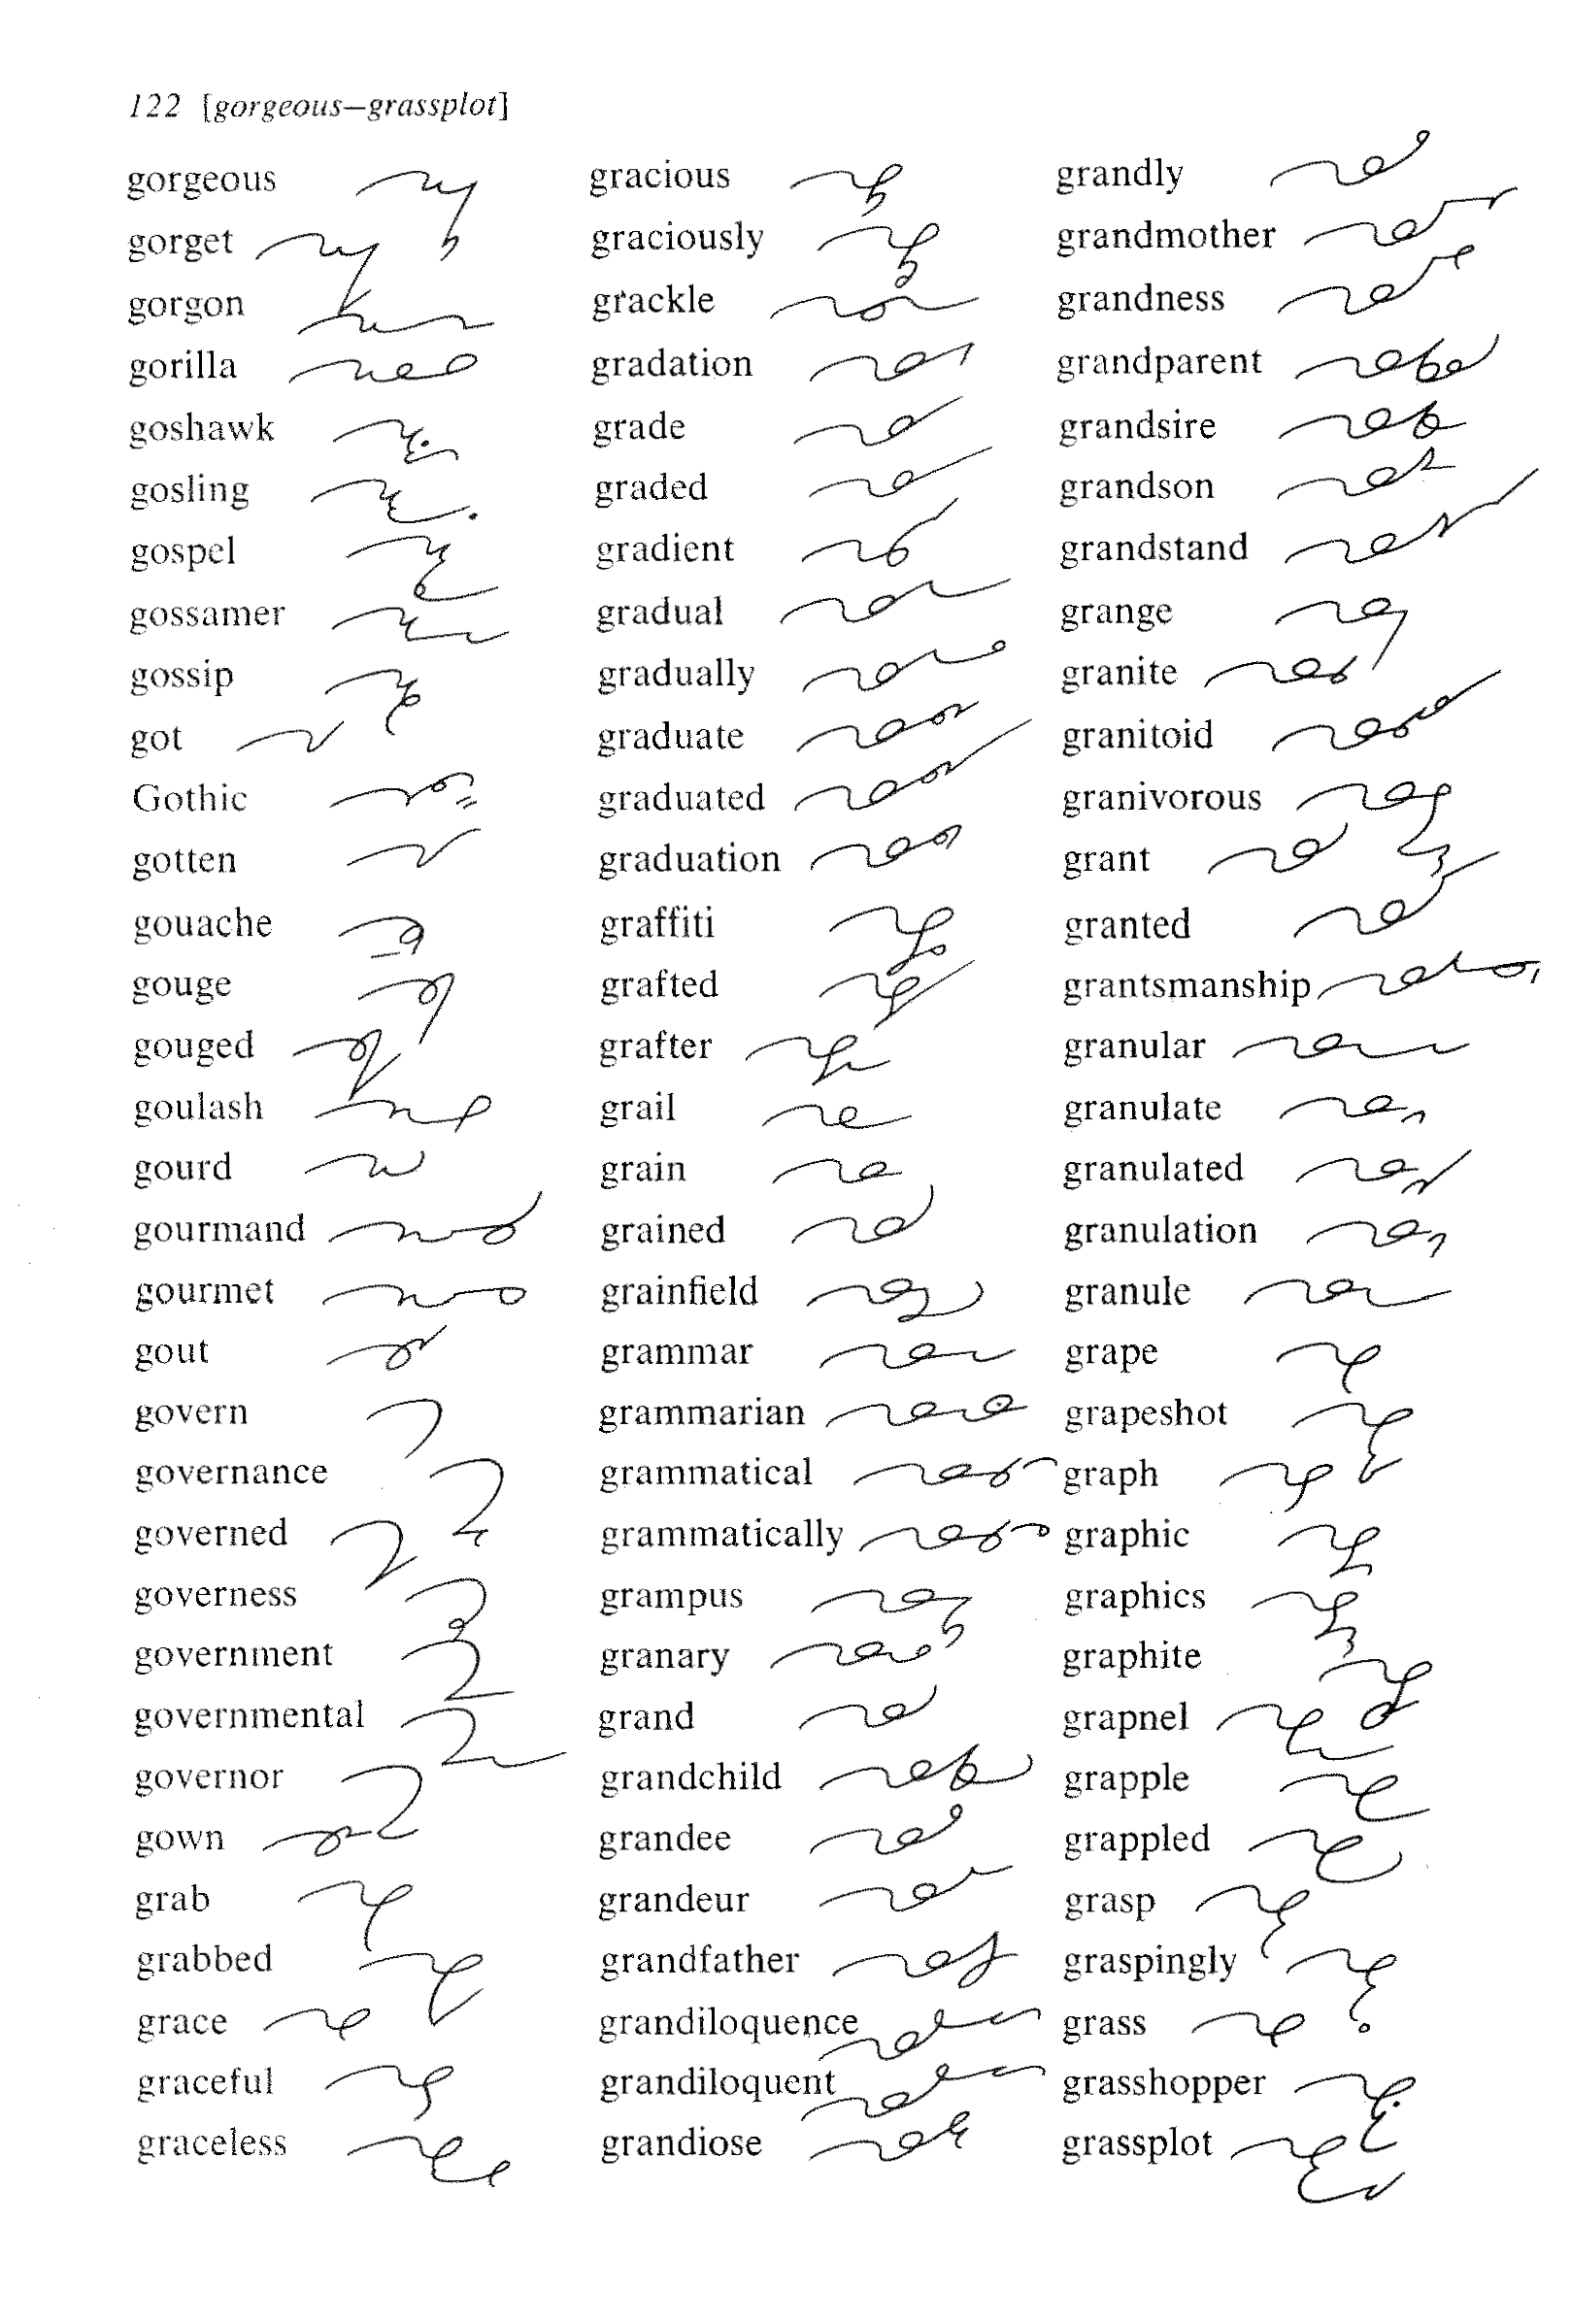 122 [gorgeous–grassplot]
gorgeous
gorget
gorgon
gorilla
goshawk
gosling
gospel
gossamer
gossip
got
Gothic
gotten
gouache
gouge
gouged
goulash
gourd
gourmand
gourmet
gout
govern
governance
governed
governess
government
governmental
governor
gown
grab
grabbed
grace
graceful
graceless
gracious
graciously
grackle
gradation
grade
graded
gradient
gradual
gradually
graduate
graduated
graduation
graffiti
grafted
grafter
grail
grain
grained
grainfield
grammar
grammarian
grammatical
grammatically
grampus
granary
grand
grandchild
grandee
grandeur
grandfather
grandiloquence
grandiloquent
grandiose
grandly
grandmother
grandness
grandparent
grandsire
grandson
grandstand
grange
granite
granitoid
granivorous
grant
granted
grantsmanship
granular
granulate
granulated
granulation
granule
grape
grapeshot
graph
graphic
graphics
graphite
grapnel
grapple
grappled
grasp
graspingly
grass
grasshopper
grassplot